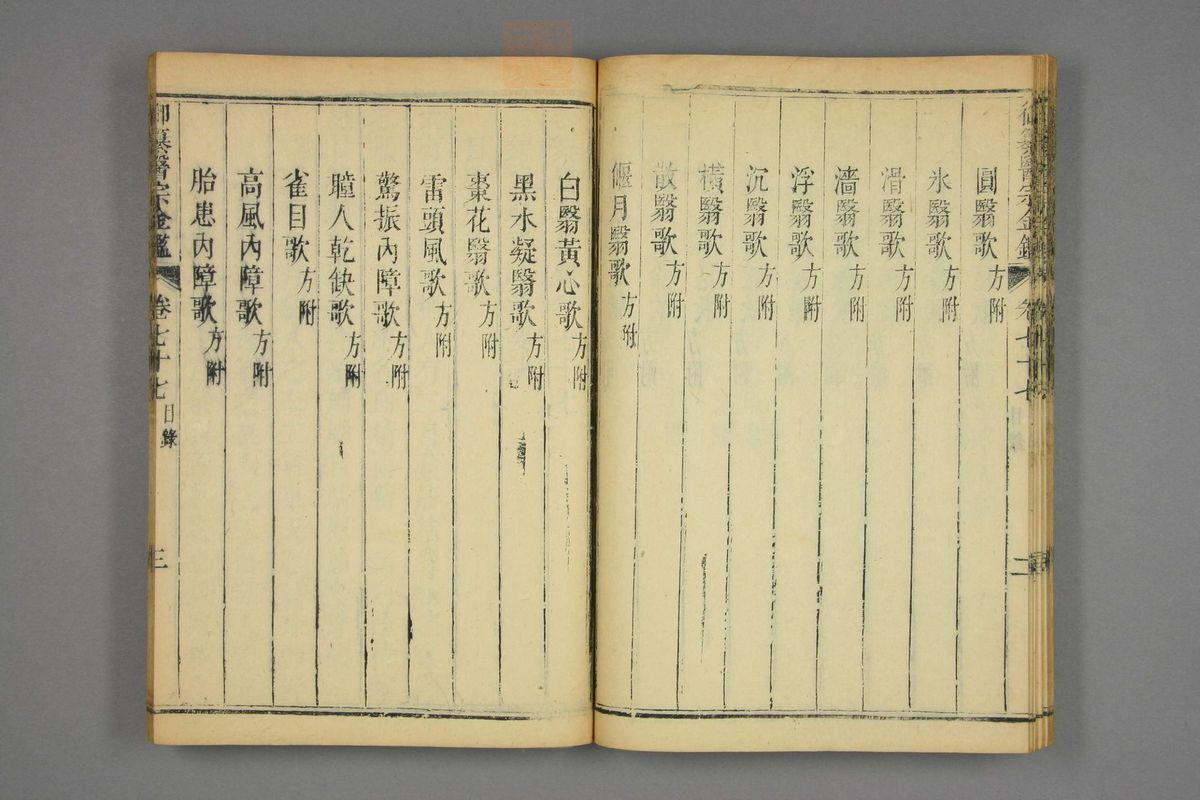 圓翳歌方附
氷翳歌方附
滑翳歌方附
濇翳歌方附
浮翳歌方附
沉翳歌方附
橫翳歌方附
散翳歌方附
偃月翳歌方附
白翳黃心歌方附
黑水凝翳歌方附
棗花翳歌方附
雷頭風歌方附
驚振內障歌方附
瞳人乾缺歌方附
雀目歌方附
高風內障歌方附
胎患內障歌方附
御纂醫宗金鑑 卷七十七 目錄 三